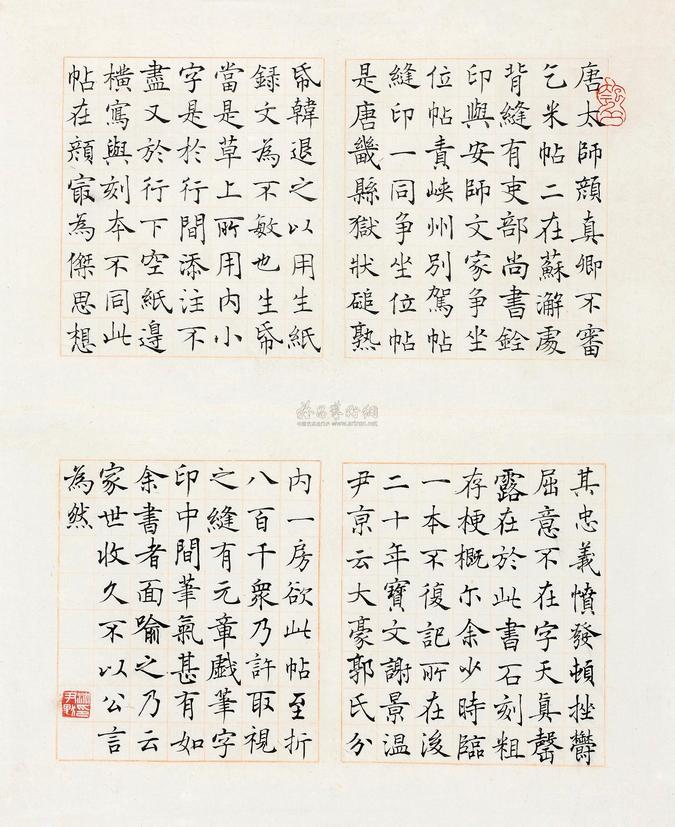 唐太師顔真卿不審
乞米帖二在蘇澥處
背縫有吏部尚書銓
印與安師文家争坐
位帖責峽州別駕帖
縫印一同争坐位帖
是唐畿縣獄狀磓熟
帋韓退之以用生紙
録文為不敏也生帋
當是草上所用内小
字是於行間添注不
盡又於行下空紙邉
橫寫與刻本不同此
帖在顔㝡為傑思想
其忠義憤發頓挫欝
屈意不在字天真罄
露在於此書石刻粗
存梗概尓余少時臨
一本不復記所在後
二十年寶文謝景温
尹京云大豪郭氏分
内一房欲此帖至折
八百千衆乃許取視
之縫有元章戯筆字
印中間筆氣甚有如
余書者面喻之乃云
家世收久不以公言
為然
www.artron.net